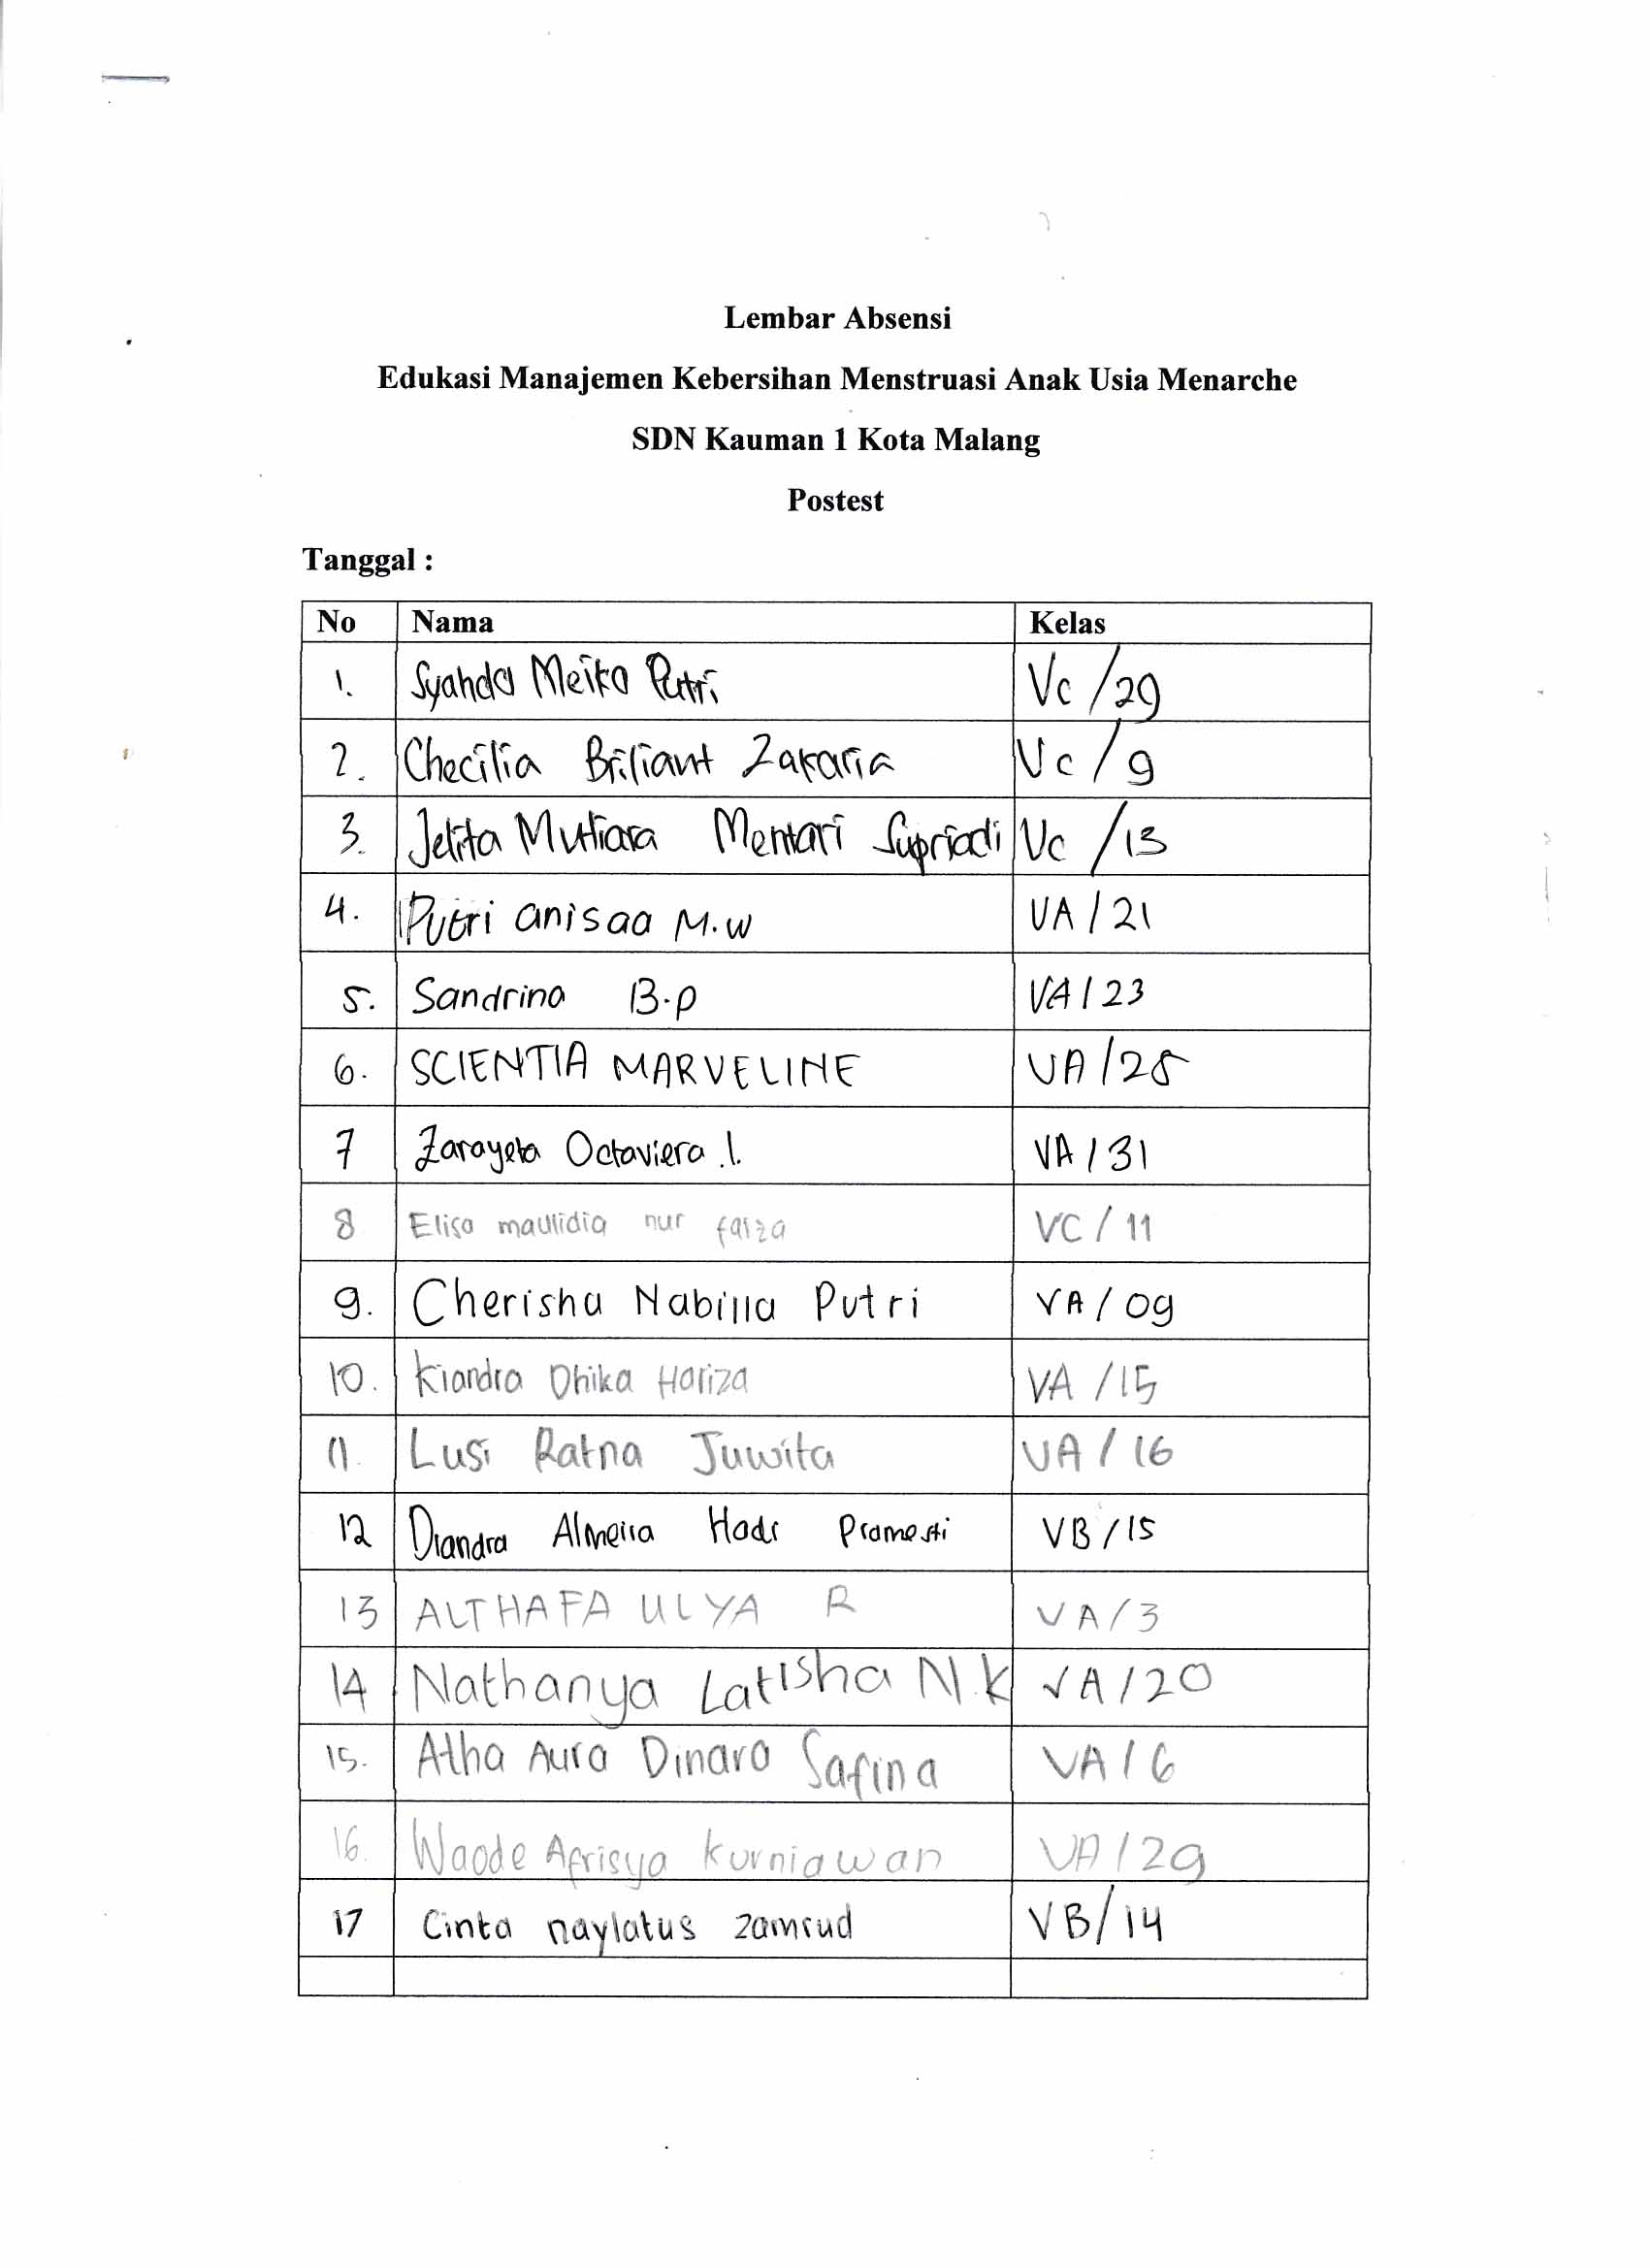 Lembar Absensi
Edukasi Manajemen Kebersihan Menstruasi Anak Usia Menarche
SDN Kauman 1 Kota Malang
Postest
Tanggal :
No Nama Kelas
1. Syahda Meika Putri Vc /29
2. Checilia Briliant Zakaria Vc / 9
3. Jelita Mutiara Mentari Supriadi Vc /13
4. Putri anisaa M.w VA / 21
5. Sandrina B.p VA / 23
6. SCIENTIA MARVELINE VA /25
7 Octaviera .I. VA / 31
8 Elisa maulidia nur faiza VC / 11
9. Cherisha Nabilla Putri VA / 09
10. Kiandra Dhika Hariza VA /15
11. Lusi Ratna Juwita VA / 16
12 Diandra Almeira Hadi Pramesti VB /15
13 ALTHAFA ULYA R VA / 3
14 Nathanya Latisha N.k VA / 20
15. Atha Aura Dinara Safina VA / 6
16. Waode Afrisya kurniawan VA / 29
17 Cinta naylatus zamrud VB/ 14